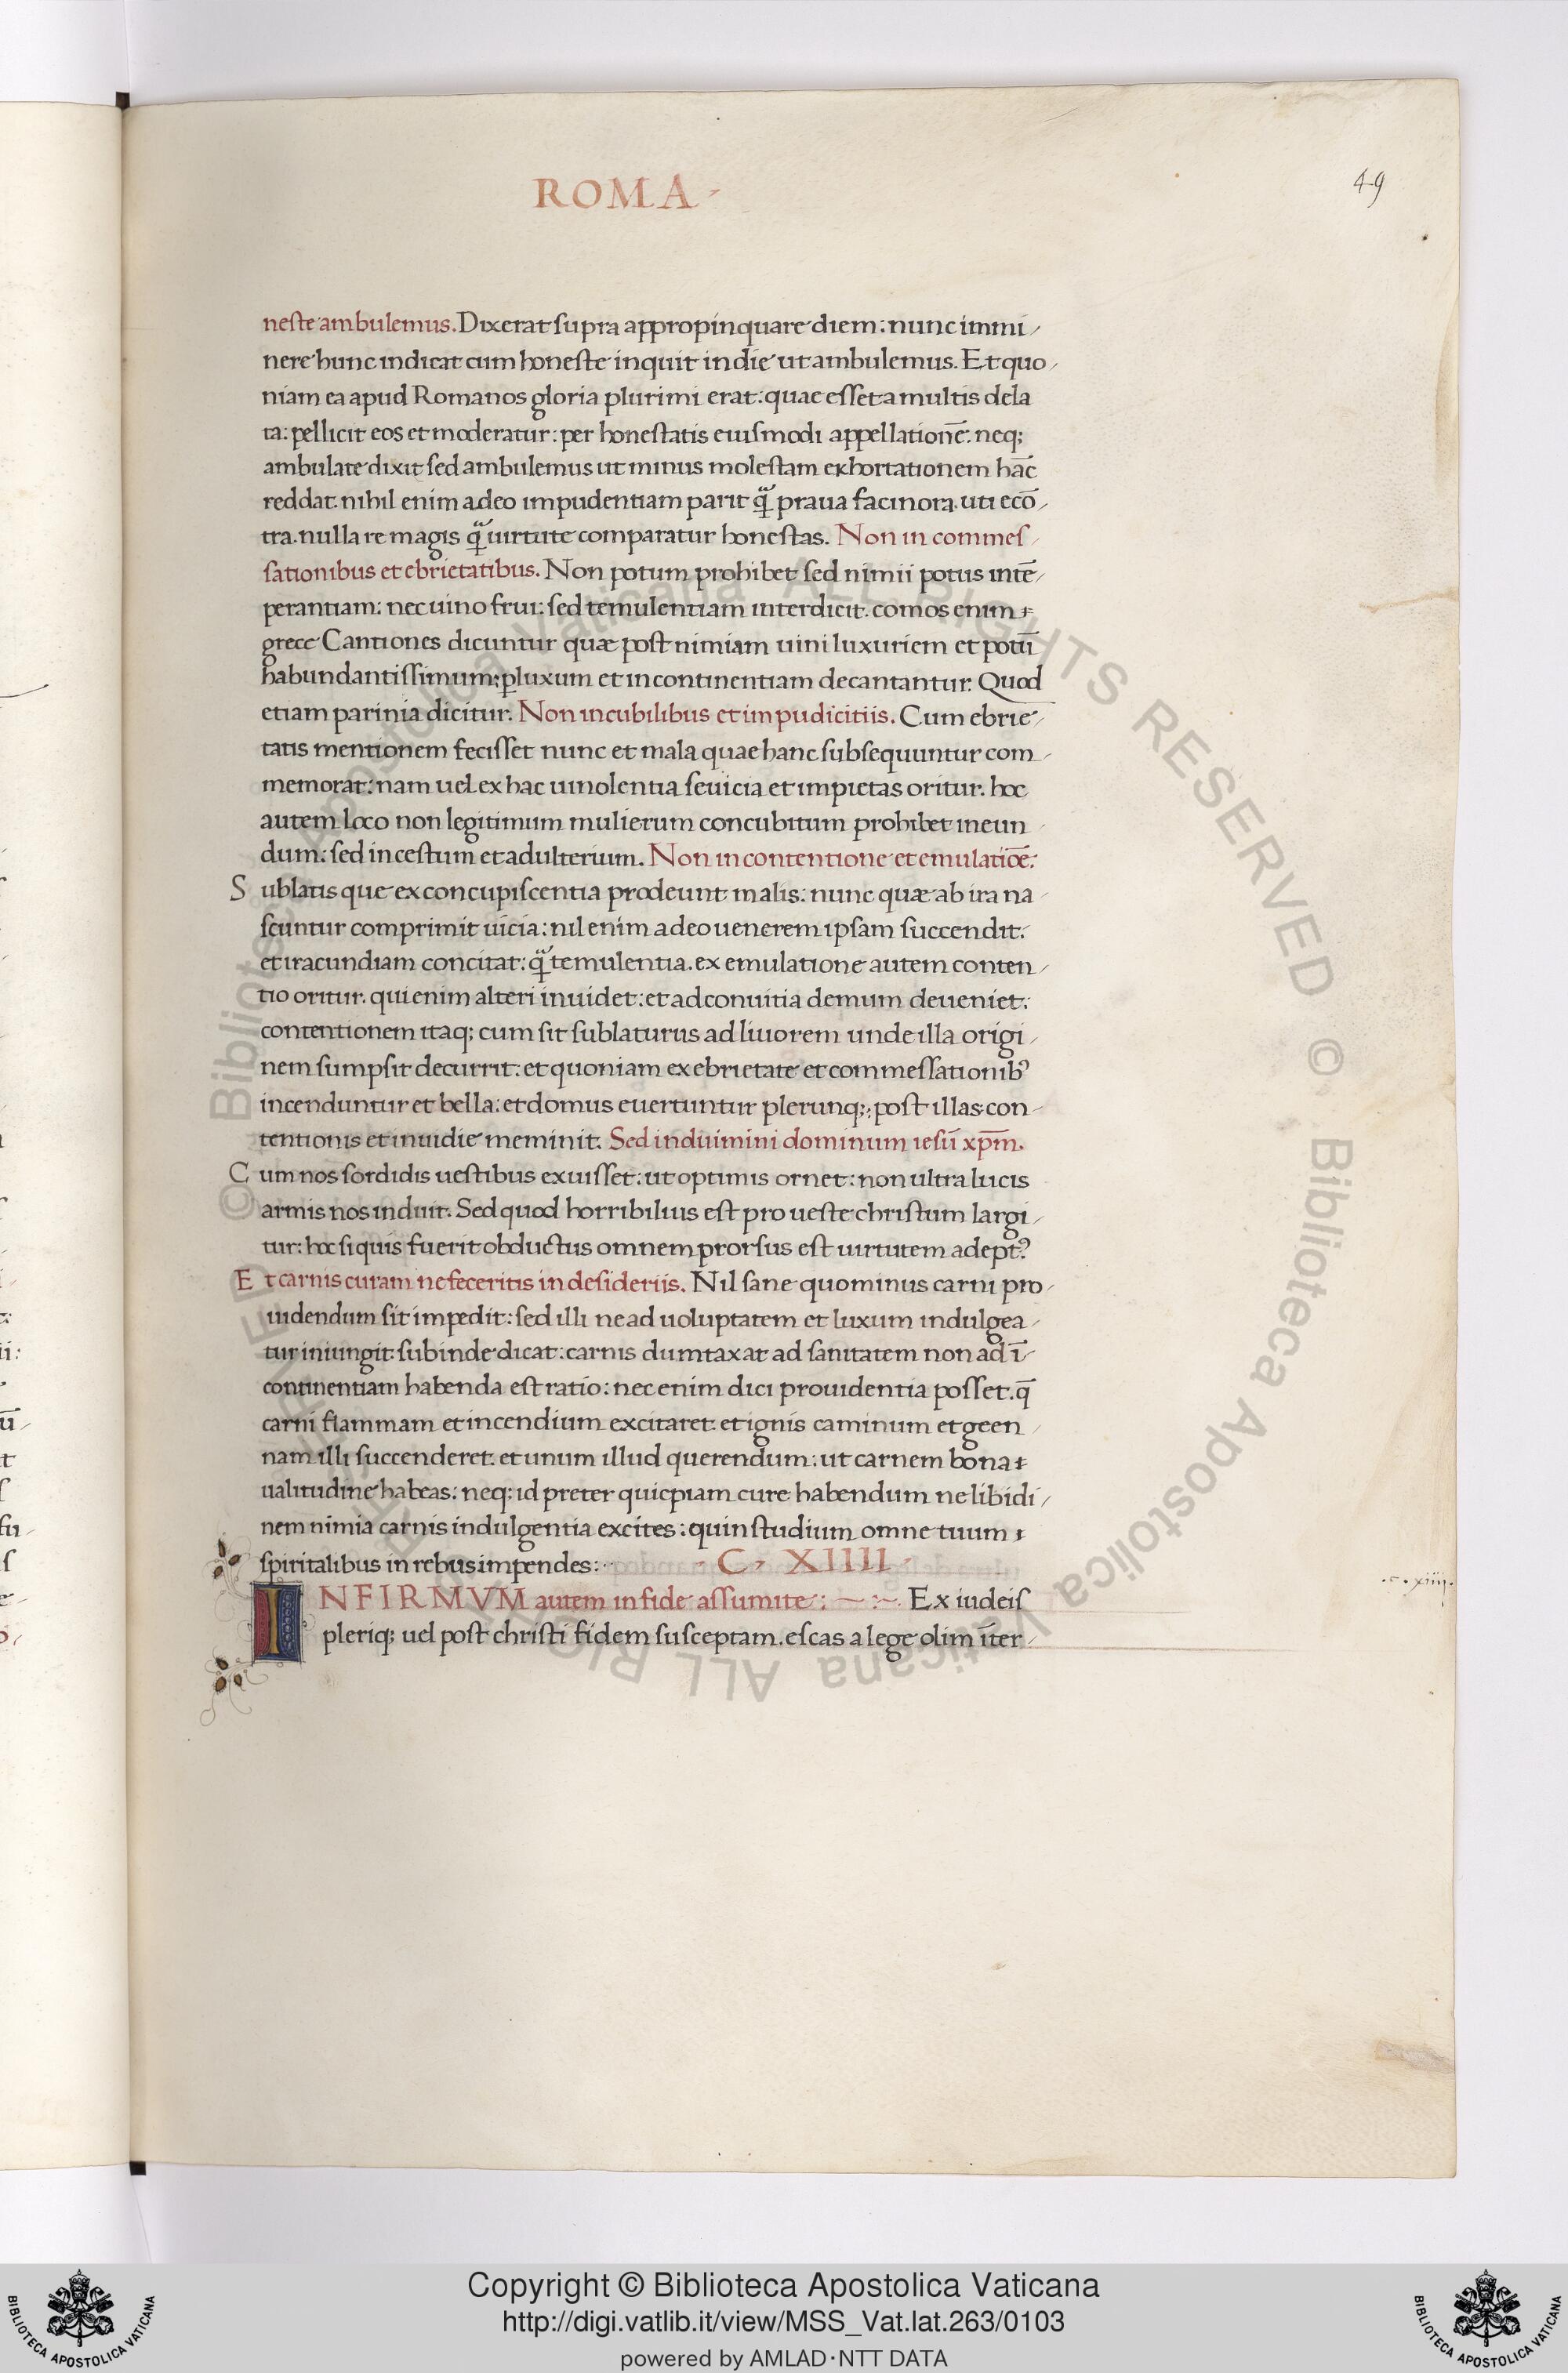 ROMA
49
neste ambulemus. Dixerat supra appropinquare diem: nunc immi
nere hunc indicat cum honeste inquit in die ut ambulemus. Et quo
niam ea apud Romanos gloria plurimi erat: quae esset a multis dela
ta: pellicit eos et moderatur: per honestatis eiusmodi appellationē. neq;
ambulate dixit sed ambulemus ut minus molestam exhortationem hāc
reddat. nihil enim adeo impudentiam parit q̃ praua facinora. uti ecō
tra. nulla re magis q̃ uirtute comparatur honestas. Non in commes
sationibus et ebrietatibus. Non potum prohibet sed nimii potus intē
perantiam: nec uino frui: sed temulentiam interdicit. comos enim
grece Cantiones dicuntur quæ post nimiam uini luxuriem et potū
habundantissimum: ꝑ luxum et incontinentiam decantantur. Quod
etiam parinia dicitur. Non in cubilibus et impudicitiis. Cum ebrie
tatis mentionem fecisset nunc et mala quae hanc subsequuntur com
memorat: nam uel ex hac uinolentia seuicia et impietas oritur. hoc
autem loco non legitimum mulierum concubitum prohibet ineun
dum: sed incestum et adulterium. Non in contentione et emulatiōe:
Sublatis que ex concupiscentia prodeunt malis: nunc quæ ab ira na
scuntur comprimit uicia: nil enim adeo uenerem ipsam succendit.
et iracundiam concitat: q̃ temulentia. ex emulatione autem conten
tio oritur. qui enim alteri inuidet: et ad conuitia demum deueniet.
contentionem itaq; cum sit sublaturus ad liuorem unde illa origi
nem sumpsit decurrit: et quoniam ex ebrietate et commessationibꝰ
incenduntur et bella: et domus euertuntur plerunq;: post illas con
tentionis et inuidie meminit. Sed induimini dominum iesū xp̄m.
Cum nos sordidis uestibus exuisset: ut optimis ornet: non ultra lucis
armis nos induit. Sed quod horribilius est pro ueste christum largi
tur: hoc si quis fuerit obductus omnem prorsus est uirtutem adeptꝰ
Et carnis curam ne feceritis in desideriis. Nil sane quominus carni pro
uidendum sit impedit: sed illi ne ad uoluptatem et luxum indulgea
tur iniungit subinde dicat: carnis dumtaxat ad sanitatem non ad ī
continentiam habenda est ratio: nec enim dici prouidentia posset. q̄
carni flammam et incendium excitaret. et ignis caminum et geen
nam illi succenderet. et unum illud querendum: ut carnem bona
ualitudine habeas: neq; id preter quicpiam cure habendum ne libidi
nem nimia carnis indulgentia excites: quin studium omne tuum
spiritalibus in rebus impendes: C. XIIII
.c. xiiij.
INFIRMVM autem in fide assumite: Ex iudeis
pleriq; uel post christi fidem susceptam. escas a lege olim īter
© Biblioteca Apostolica Vaticana ALL RIGHTS RESERVED © Biblioteca Apostolica Vaticana ALL RIGHTS RESERVED
Copyright © Biblioteca Apostolica Vaticana
http://digi.vatlib.it/view/MSS_Vat.lat.263/0103
powered by AMLAD·NTT DATA
BIBLIOTECA APOSTOLICA VATICANA
BIBLIOTECA APOSTOLICA VATICANA